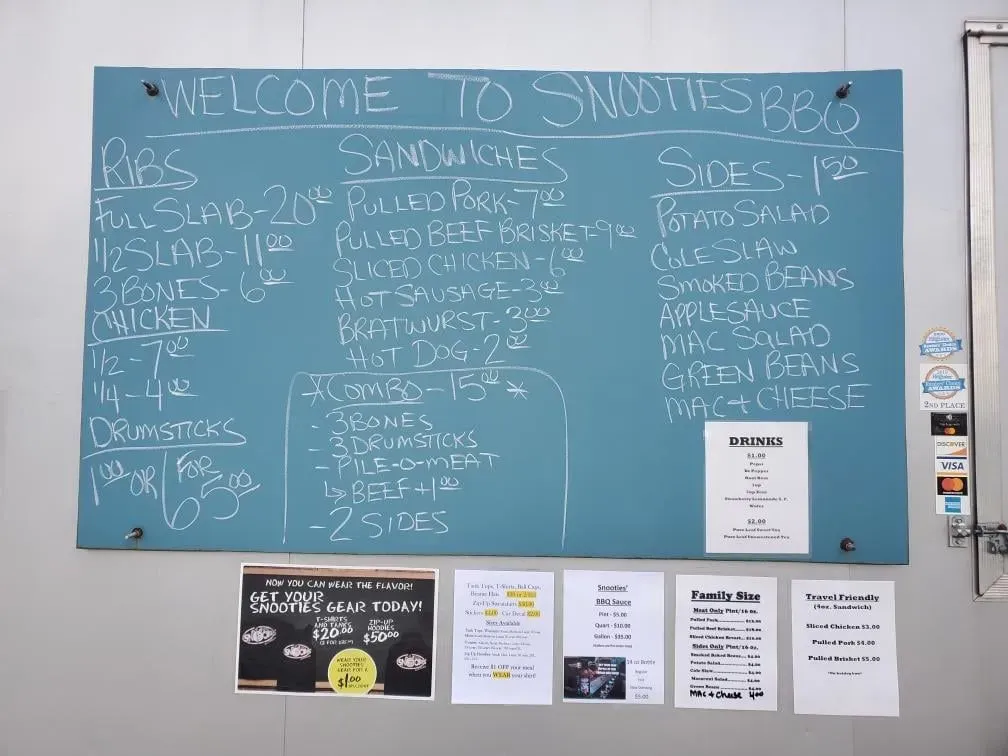 WELCOME TO SNOOTIES BBQ
RIBS
FULL SLAB - 20.00
1/2 SLAB - 11.00
3 BONES - 6.00
CHICKEN
1/2 - 7.00
1/4 - 4.00
DRUMSTICKS
1.00 OR 6 FOR 5.00
SANDWICHES
PULLED PORK - 7.00
PULLED BEEF BRISKET - 9.00
SLICED CHICKEN - 6.00
HOT SAUSAGE - 3.00
BRATWURST - 3.00
HOT DOG - 2.00
*COMBO - 15.00*
- 3 BONES
- 3 DRUMSTICKS
- PILE-O-MEAT
↳ BEEF + 1.00
- 2 SIDES
SIDES - 1.50
POTATO SALAD
COLE SLAW
SMOKED BEANS
APPLESAUCE
MAC SALAD
GREEN BEANS
MAC + CHEESE
DRINKS
$1.00
Pepsi
Dr Pepper
Root Beer
Strawberry Lemonade
Water
$2.00
Pure Leaf Sweet Tea
Pure Leaf Unsweetened Tea
AWARDS
AWARDS
2ND PLACE
DISCOVER
VISA
NOW YOU CAN WEAR THE FLAVOR!
GET YOUR
SNOOTIES GEAR TODAY!
T-SHIRTS
AND TANKS
$20.00
ZIP-UP
HOODIES
$50.00
WEAR YOUR
SNOOTIES
GEAR FOR A
$1.00
Tank Tops, T-Shirts, Ball Caps,
Zip Up Sweatshirts
Stickers Car Decal
Sizes Available
Receive $1 OFF your meal
when you WEAR your shirt!
Snooties'
BBQ Sauce
Pint - $5.00
Quart - $10.00
Gallon - $35.00
$5.00
Family Size
Meat Only Pint/16 oz.
Pulled Pork
Pulled Beef Brisket
Sliced Chicken Breast
Sides Only Pint/16 oz.
Smoked Baked Beans $4.00
Potato Salad $4.00
Cole Slaw $4.00
Macaroni Salad $4.00
Green Beans $4.00
MAC + Cheese 4.00
Travel Friendly
(4oz. Sandwich)
Sliced Chicken $3.00
Pulled Pork $4.00
Pulled Brisket $5.00